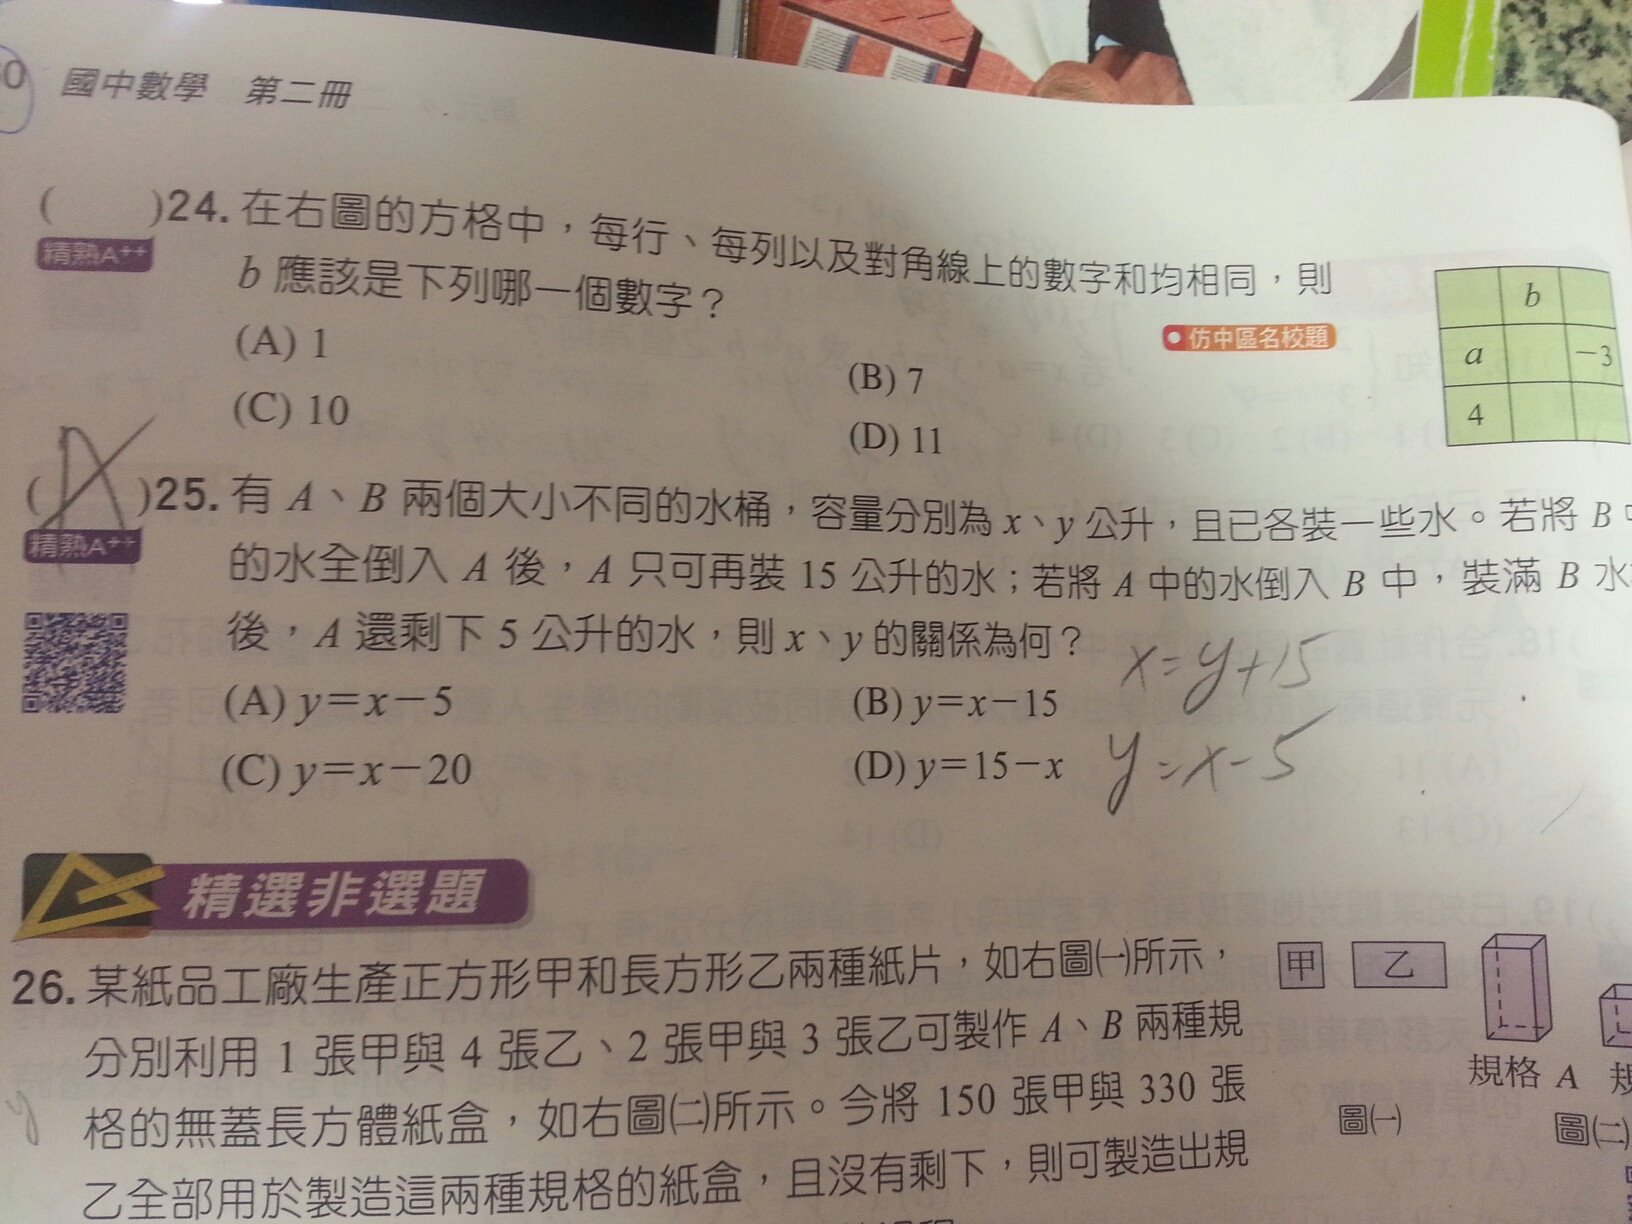 國中數學 第二冊
( )24. 在右圖的方格中，每行、每列以及對角線上的數字和均相同，則
精熟A++
b 應該是下列哪一個數字？
仿中區名校題
(A) 1
(B) 7
(C) 10
(D) 11
b
a -3
4
( A )25. 有 A、B 兩個大小不同的水桶，容量分別為 x、y 公升，且已各裝一些水。若將 B
精熟A++
的水全倒入 A 後，A 只可再裝 15 公升的水；若將 A 中的水倒入 B 中，裝滿 B 水
後，A 還剩下 5 公升的水，則 x、y 的關係為何？
x=y+15
(A) y=x-5
(B) y=x-15
(C) y=x-20
(D) y=15-x
y=x-5
精選非選題
26. 某紙品工廠生產正方形甲和長方形乙兩種紙片，如右圖㈠所示，
分別利用 1 張甲與 4 張乙、2 張甲與 3 張乙可製作 A、B 兩種規
格的無蓋長方體紙盒，如右圖㈡所示。今將 150 張甲與 330 張
乙全部用於製造這兩種規格的紙盒，且沒有剩下，則可製造出規
甲 乙
規格 A
圖㈠
圖㈡
y